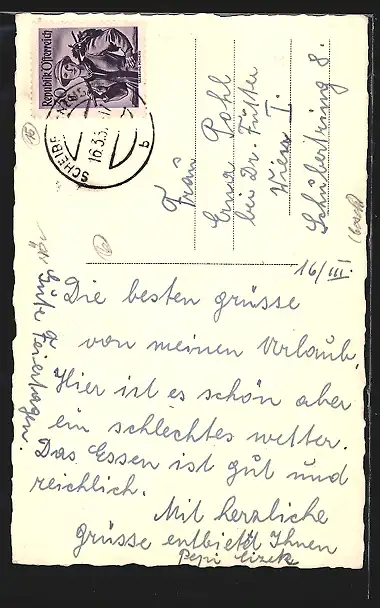 Republik Österreich
30
SCHEIBBS
16.3.5
b
Frau
Erna Pohl
bei Dr. Fütter
Wien I.
Schubertring 8.
16/III.
Die besten grüsse
von meinen Urlaub.
Hier ist es schön aber
ein schlechtes wetter.
Das Essen ist gut und
reichlich.
Mit herzliche
grüsse entbietet Ihnen
Pepi Cizek
Gute Feiertagen.